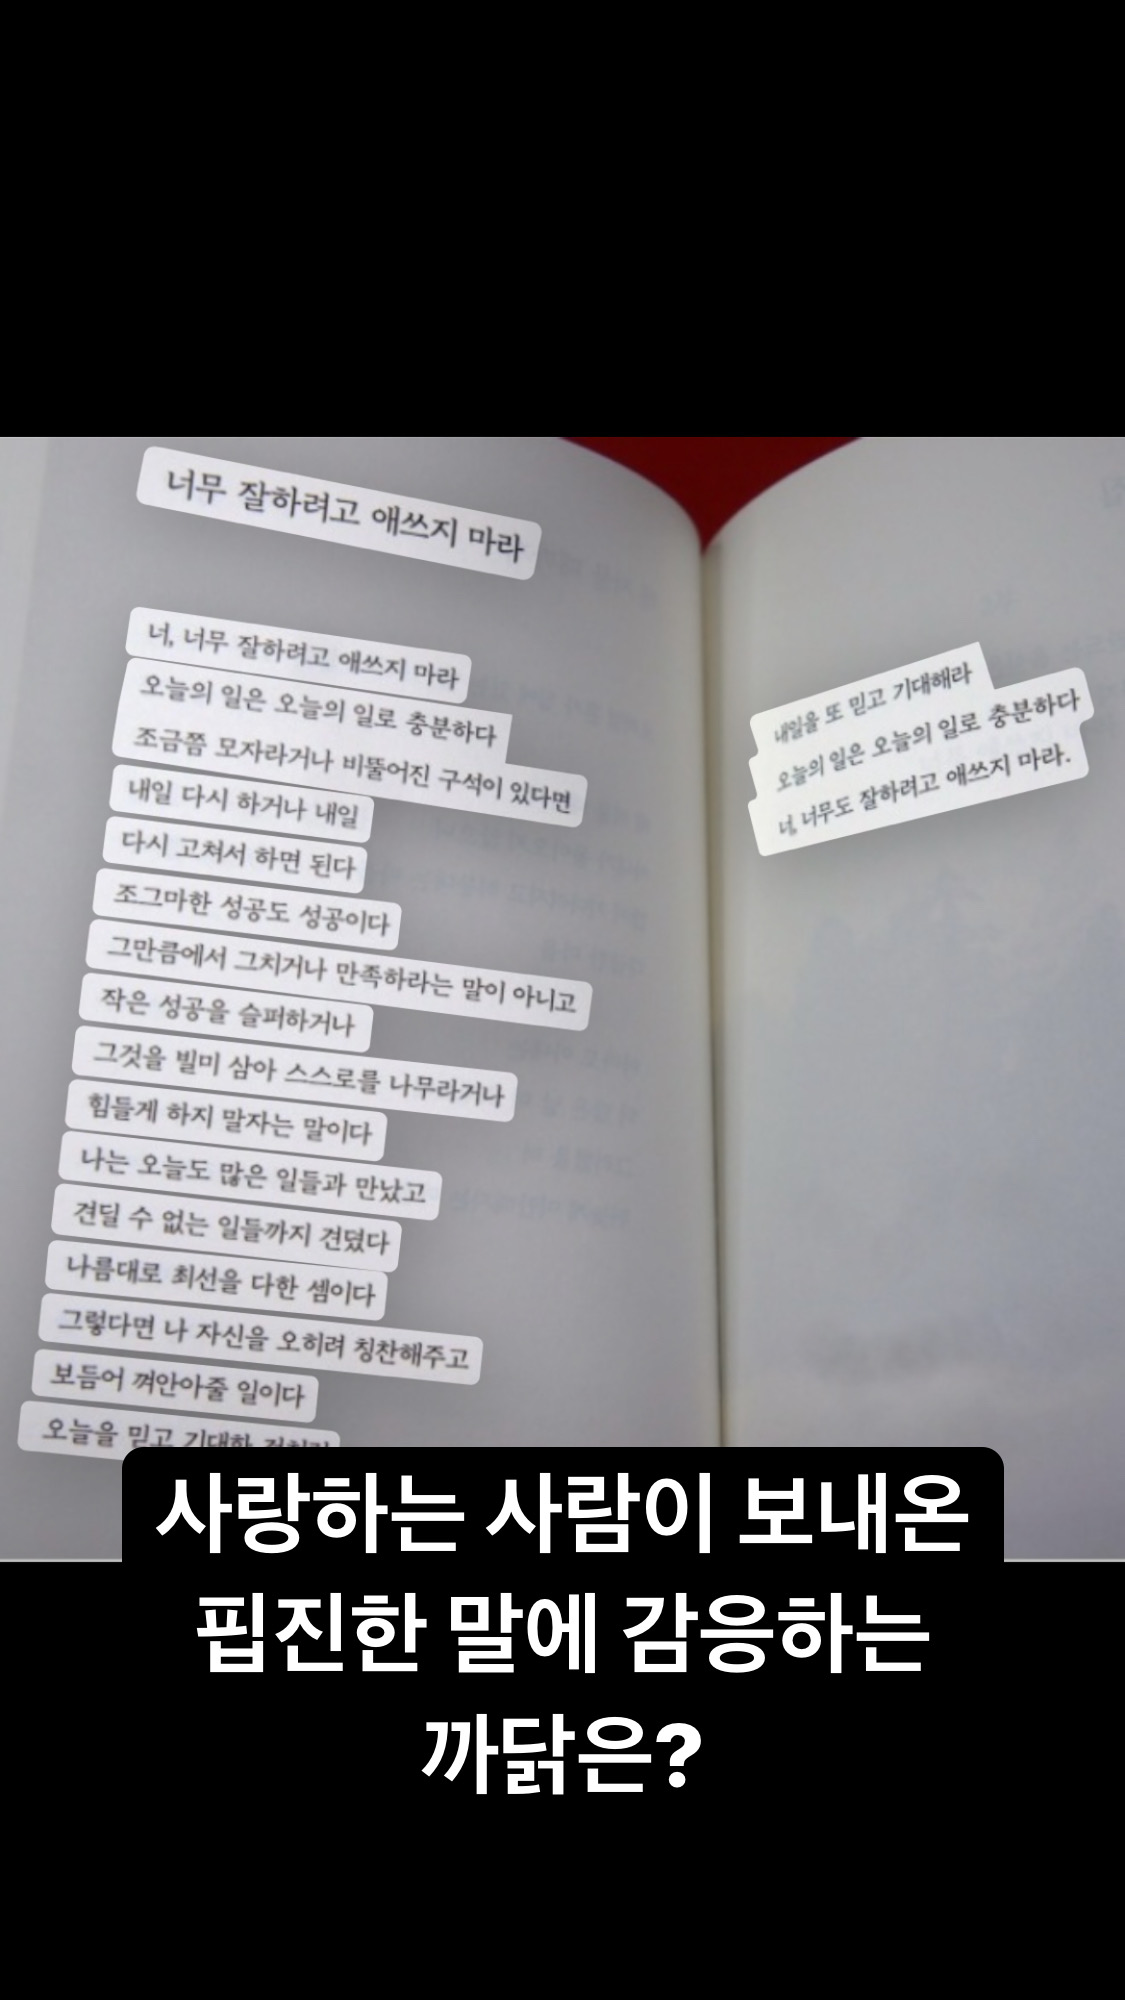 너무 잘하려고 애쓰지 마라
너, 너무 잘하려고 애쓰지 마라
오늘의 일은 오늘의 일로 충분하다
조금쯤 모자라거나 비뚤어진 구석이 있다면
내일 다시 하거나 내일
다시 고쳐서 하면 된다
조그마한 성공도 성공이다
그만큼에서 그치거나 만족하라는 말이 아니고
작은 성공을 슬퍼하거나
그것을 빌미 삼아 스스로를 나무라거나
힘들게 하지 말자는 말이다
나는 오늘도 많은 일들과 만났고
견딜 수 없는 일들까지 견뎠다
나름대로 최선을 다한 셈이다
그렇다면 나 자신을 오히려 칭찬해주고
보듬어 껴안아줄 일이다
오늘을 믿고 기대한 것처럼
내일을 또 믿고 기대해라
오늘의 일은 오늘의 일로 충분하다
너, 너무도 잘하려고 애쓰지 마라.
사랑하는 사람이 보내온
핍진한 말에 감응하는
까닭은?